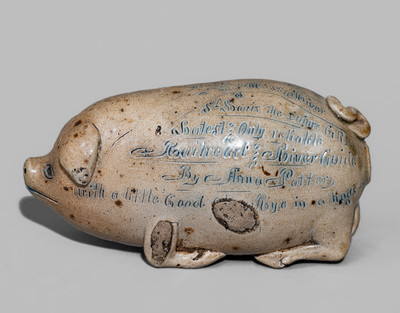 St Louis the Future
Latest & Only reliable
Railroad & River Guide
By Anna Pottery
with a little Good Rye in a